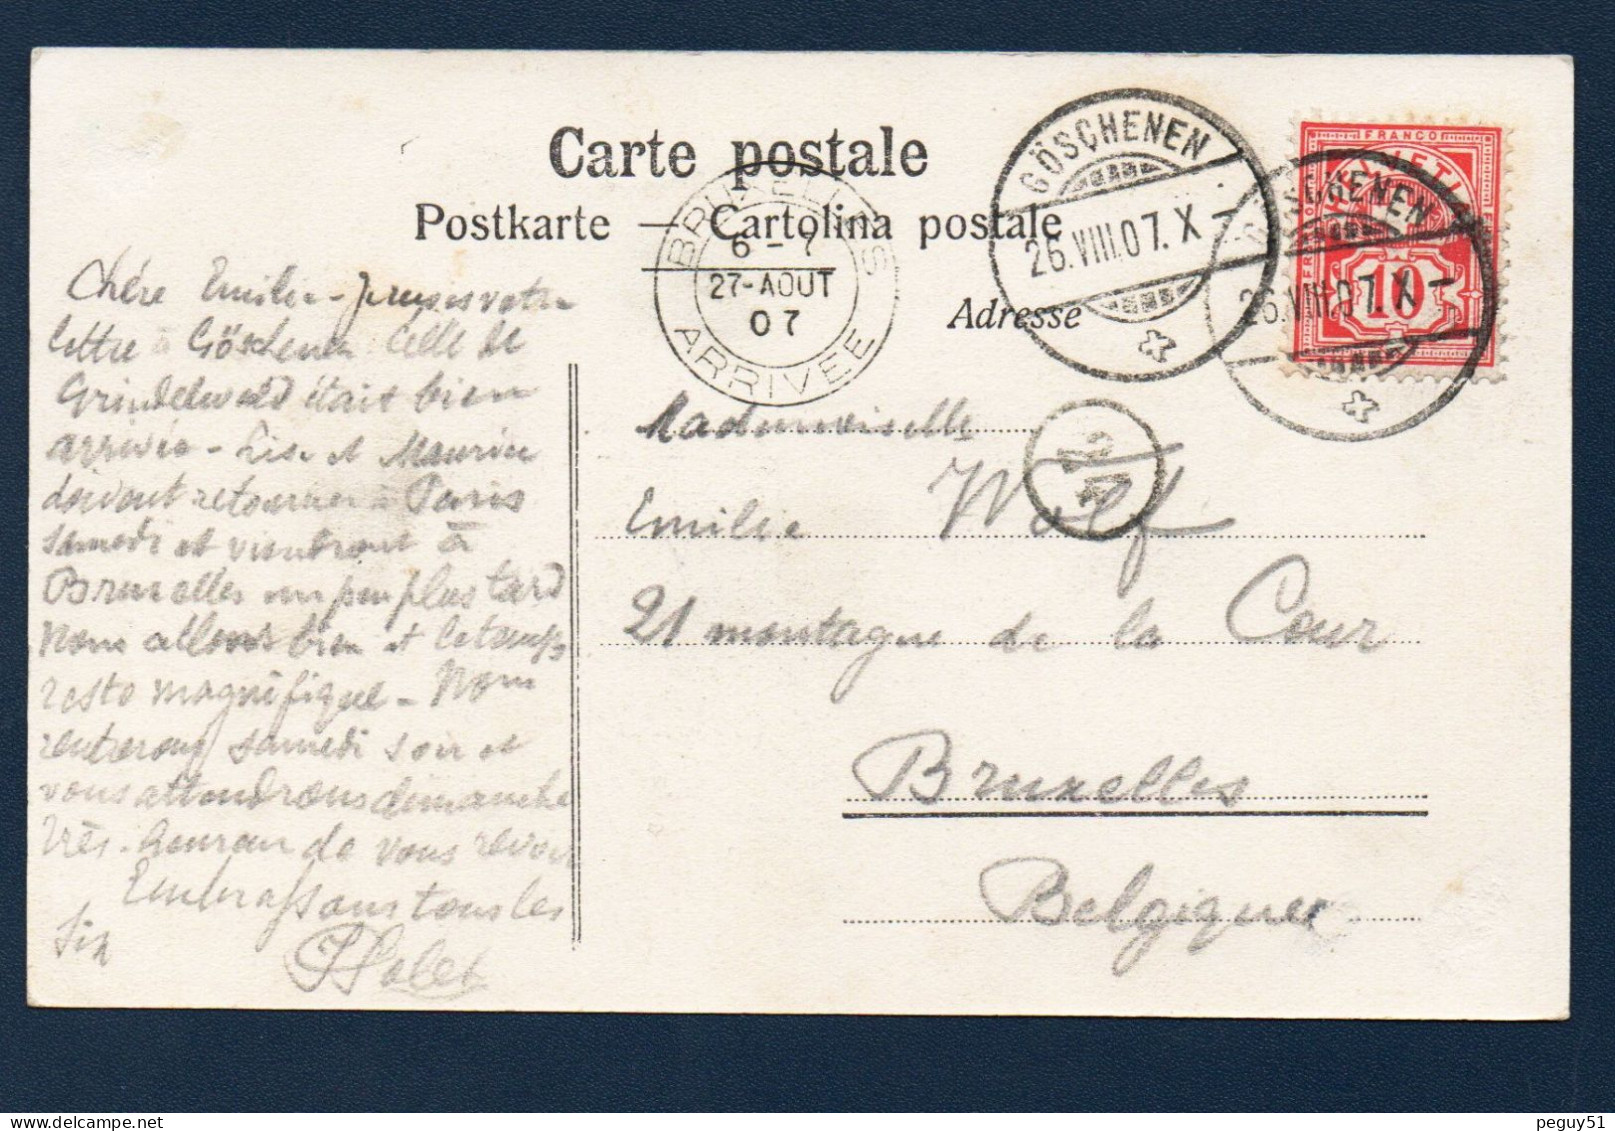 Carte postale
Postkarte — Cartolina postale
Adresse
GÖSCHENEN
26.VIII.07.X-
GÖSCHENEN
26.VIII.07.X-
FRANCO
HELVETIA
10
BRUXELLES
6-7
27-AOUT
07
ARRIVEE
Chére Emilie - votre
lettre à Göschenen Celle de
Grindelwald était bien
arrivée - Lise et Maurice
doivent retourner à Paris
samedi et viendront à
Bruxelles un peu plus tard
Nous allons bien et le temps
reste magnifique - Nous
rentrerons samedi soir et
vous attendrons dimanche
très heureux de vous revoir
Embrassons tous les
six
Mademoiselle
Emilie Wolf
21 montagne de la Cour
Bruxelles
Belgique
peguy51